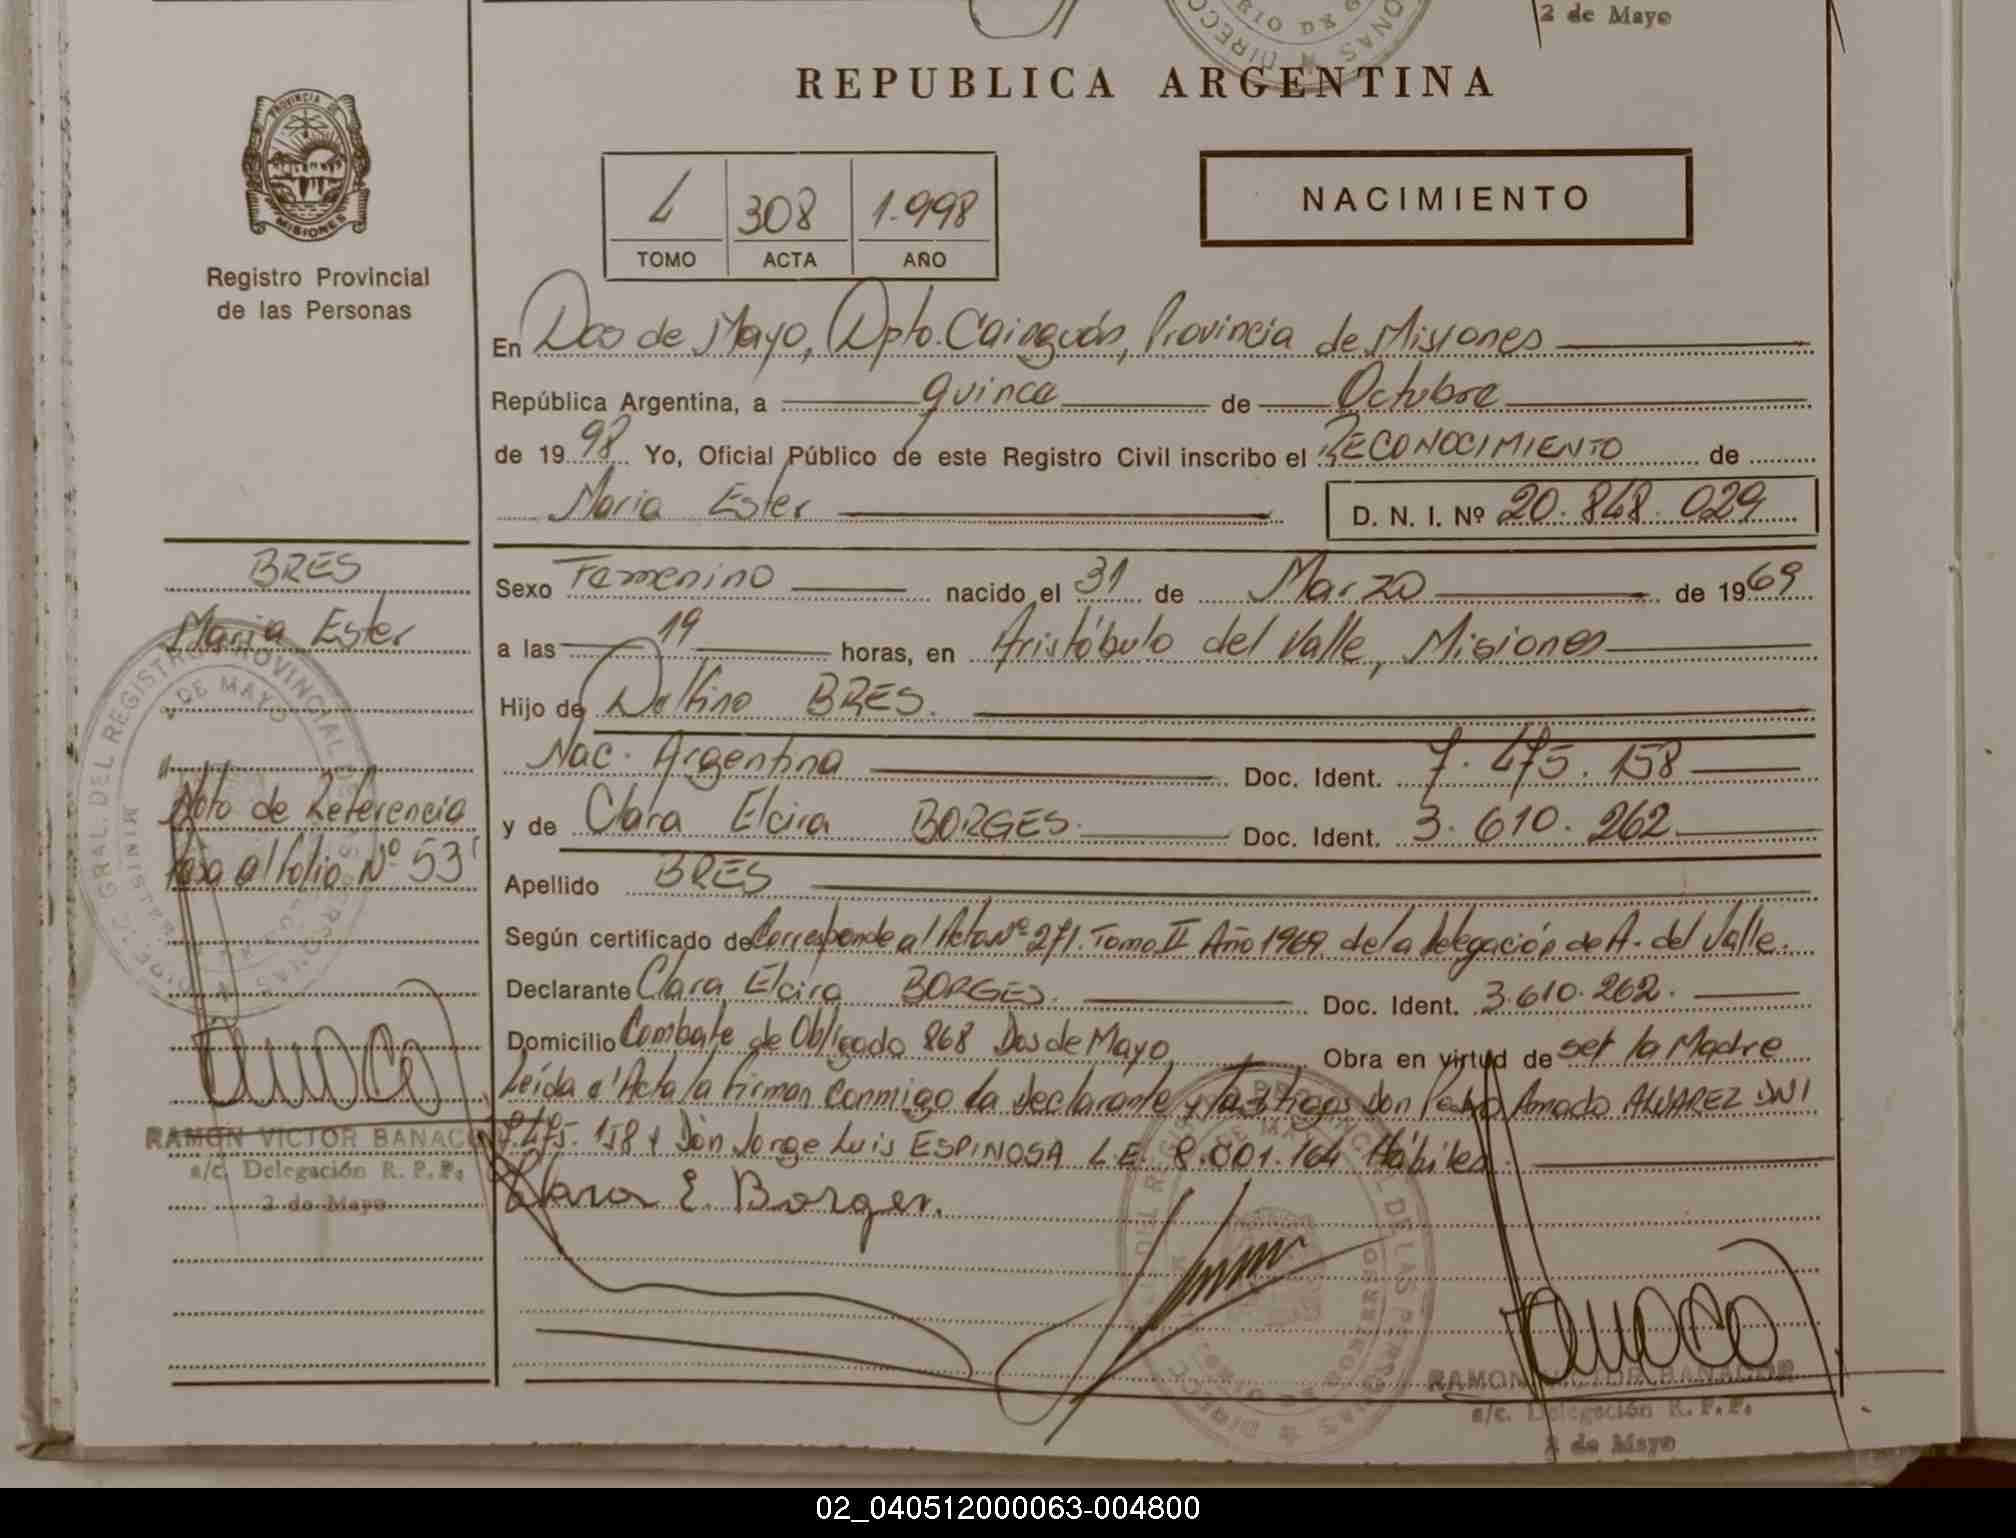 2 de Mayo
REPUBLICA ARGENTINA
PROVINCIA DE
MISIONES
Registro Provincial
de las Personas
308 1.998
TOMO ACTA AÑO
NACIMIENTO
En Dos de Mayo, Dpto. Cainguás, Provincia de Misiones
República Argentina, a quince de Octubre
de 19 98 Yo, Oficial Público de este Registro Civil inscribo el RECONOCIMIENTO de
Maria Ester D. N. I. Nº 20.848.029
BRES
Maria Ester
Nota de Referencia
pasa al folio Nº 53
RAMON VICTOR BANACOR
a/c. Delegación R. P. P.
2 de Mayo
Sexo Femenino nacido el 31 de Marzo de 1969
a las 19 horas, en Aristóbulo del Valle, Misiones
Hijo de Delfino BRES.
Nac. Argentina Doc. Ident. 7.475.158
y de Clara Elcira BORGES. Doc. Ident. 3.610.262
Apellido BRES
Según certificado de Corresponde al Acta Nº 271. Tomo II Año 1969 de la Delegación de A. del Valle.
Declarante Clara Elcira BORGES. Doc. Ident. 3.610.262.
Domicilio Combate de Obligado 868 Dos de Mayo Obra en virtud de ser la Madre
Leída el Acta la firman conmigo la Declarante y Testigos Don Pedro Amado ALVAREZ DNI
7.475.158 y Don Jorge Luis ESPINOSA L.E. 8.001.164 Hábiles.
Clara E. Borges.
RAMON VICTOR BANACOR
a/c. Delegación R. P. P.
2 de Mayo
02_040512000063-004800